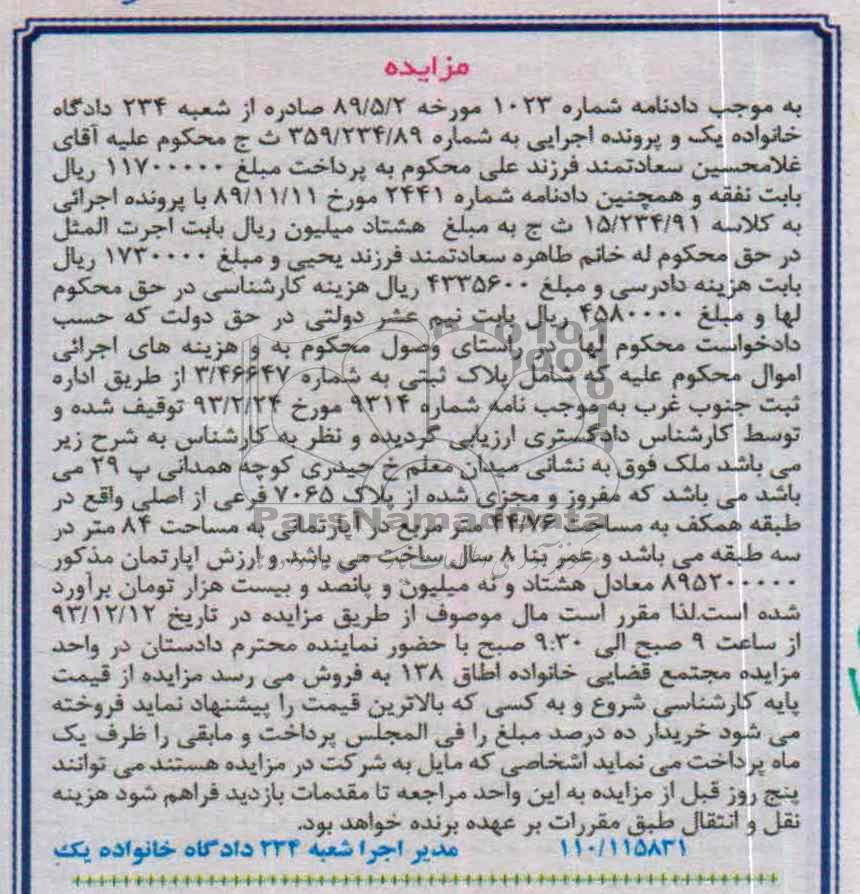 مزایده
به موجب دادنامه شماره ۱۰۲۳ مورخه ۸۹/۵/۲ صادره از شعبه ۲۳۴ دادگاه
خانواده یک و پرونده اجرایی به شماره ۳۵۹/۲۳۴/۸۹ ث ج محکوم علیه آقای
غلامحسین سعادتمند فرزند علی محکوم به پرداخت مبلغ ۱۱۷۰۰۰۰۰۰ ریال
بابت نفقه و همچنین دادنامه شماره ۲۴۴۱ مورخ ۸۹/۱۱/۱۱ با پرونده اجرائی
به کلاسه ۱۵/۲۳۴/۹۱ ث ج به مبلغ هشتاد میلیون ریال بابت اجرت المثل
در حق محکوم له خانم طاهره سعادتمند فرزند یحیی و مبلغ ۱۷۳۰۰۰۰ ریال
بابت هزینه دادرسی و مبلغ ۴۳۳۵۶۰۰ ریال هزینه کارشناسی در حق محکوم
لها و مبلغ ۴۵۸۰۰۰۰ ریال بابت نیم عشر دولتی در حق دولت که حسب
دادخواست محکوم لها در راستای وصول محکوم به و هزینه های اجرائی
اموال محکوم علیه که شامل پلاک ثبتی به شماره ۳/۴۶۶۴۷ از طریق اداره
ثبت جنوب غرب به موجب نامه شماره ۹۳۱۴ مورخ ۹۳/۲/۲۴ توقیف شده و
توسط کارشناس دادگستری ارزیابی گردیده و نظر به کارشناس به شرح زیر
می باشد ملک فوق به نشانی میدان معلم خ حیدری کوچه همدانی پ ۲۹ می
باشد می باشد که مفروز و مجزی شده از پلاک ۷۰۶۵ فرعی از اصلی واقع در
طبقه همکف به مساحت ۴۴/۷۶ متر مربع در آپارتمانی به مساحت ۸۴ متر در
سه طبقه می باشد و عمر بنا ۸ سال ساخت می باشد و ارزش اپارتمان مذکور
۸۹۵۲۰۰۰۰۰ معادل هشتاد و نه میلیون و پانصد و بیست هزار تومان برآورد
شده است.لذا مقرر است مال موصوف از طریق مزایده در تاریخ ۹۳/۱۲/۱۲
از ساعت ۹ صبح الی ۹:۳۰ صبح با حضور نماینده محترم دادستان در واحد
مزایده مجتمع قضایی خانواده اطاق ۱۳۸ به فروش می رسد مزایده از قیمت
پایه کارشناسی شروع و به کسی که بالاترین قیمت را پیشنهاد نماید فروخته
می شود خریدار ده درصد مبلغ را فی المجلس پرداخت و مابقی را ظرف یک
ماه پرداخت می نماید اشخاصی که مایل به شرکت در مزایده هستند می توانند
پنج روز قبل از مزایده به این واحد مراجعه تا مقدمات بازدید فراهم شود هزینه
نقل و انتقال طبق مقررات بر عهده برنده خواهد بود.
۱۱۰/۱۱۵۸۳۱ مدیر اجرا شعبه ۲۳۴ دادگاه خانواده یک
ParsNamadData